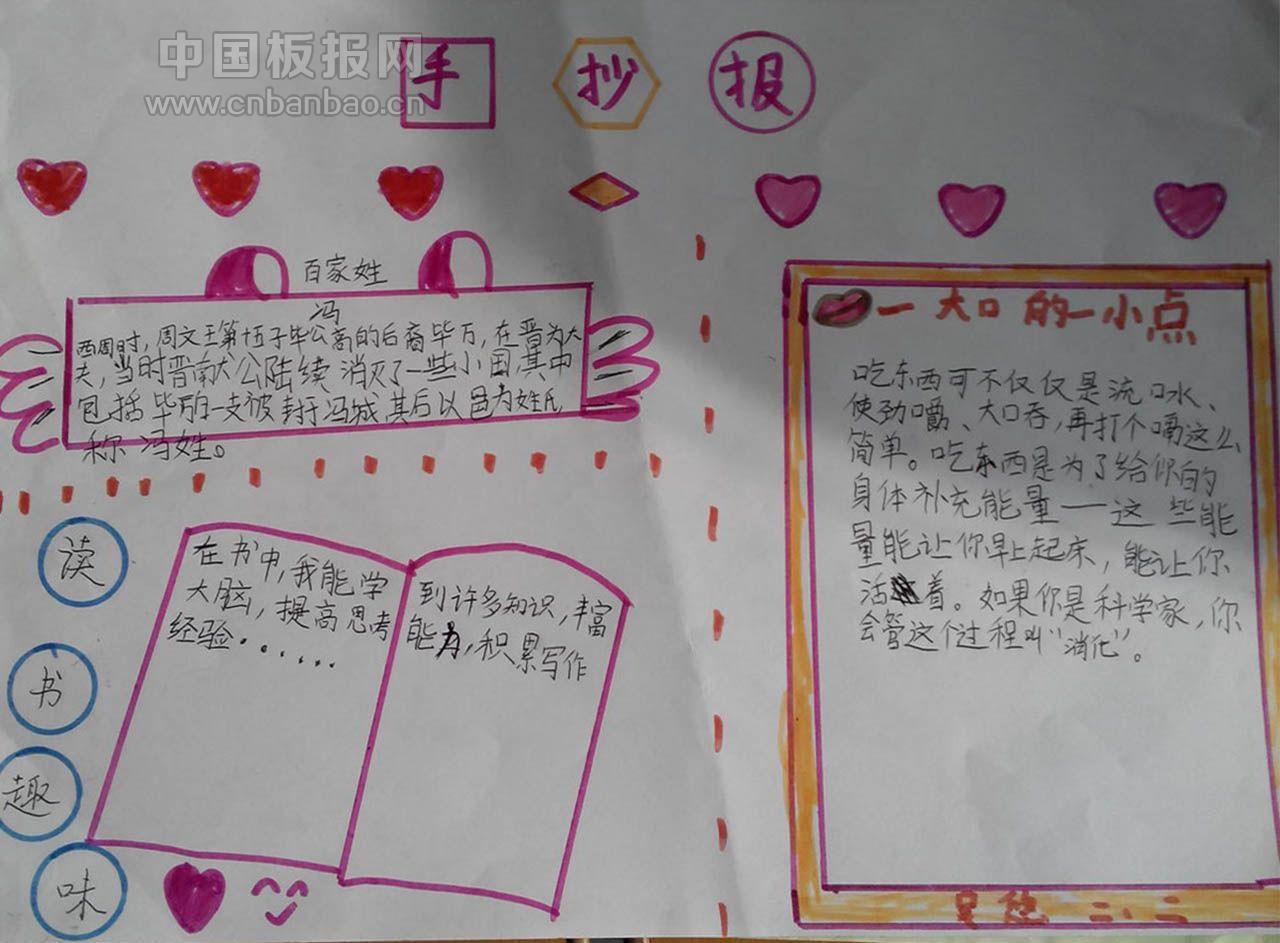 中国板报网
www.cnbanbao.cn
手 抄 报
百家姓
冯
西周时,周文王第十五子毕公高的后裔毕万,在晋为大
夫,当时晋献公陆续消灭了一些小国,其中
包括毕万的一支被封于冯城其后以邑为姓氏,
称冯姓。
读
书
趣
味
在书中,我能学
大脑,提高思考
经验.......
到许多知识,丰富
能力,积累写作
一大口的一小点
吃东西可不仅仅是流口水、
使劲嚼、大口吞,再打个嗝这么
简单。吃东西是为了给你的
身体补充能量——这些能
量能让你早上起床,能让你
活着。如果你是科学家,你
会管这个过程叫"消化"。
二、二